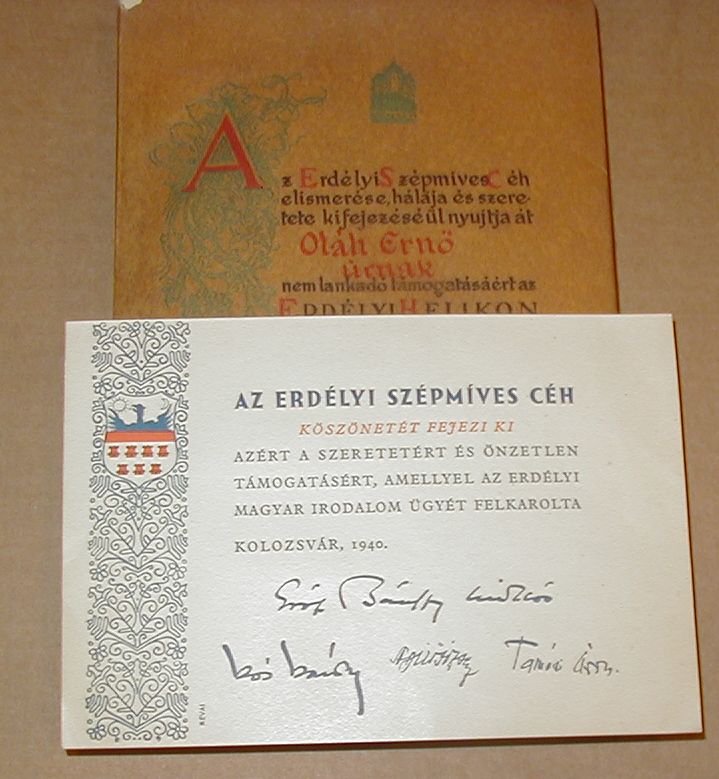 Az Erdélyi Szépmíves Céh
elismerése, hálája és szere-
tete kifejezéséül nyujtja át
Oláh Ernö
úrnak
nem lankadó támogatásáért az
ERDÉLYI HELIKON
AZ ERDÉLYI SZÉPMÍVES CÉH
KÖSZÖNETÉT FEJEZI KI
AZÉRT A SZERETETÉRT ÉS ÖNZETLEN
TÁMOGATÁSÉRT, AMELLYEL AZ ERDÉLYI
MAGYAR IRODALOM ÜGYÉT FELKAROLTA
KOLOZSVÁR, 1940.
Gróf Bánffy Miklós
Kós Károly Tamási Áron.
RÉVAI